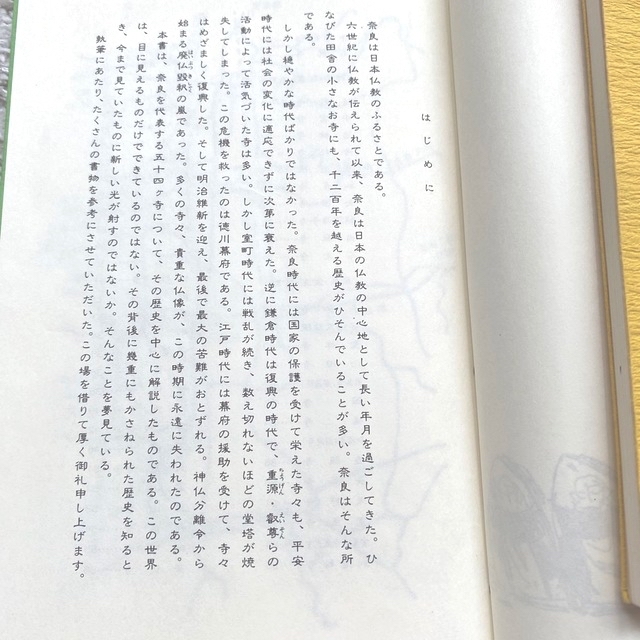 はじめに
奈良は日本仏教のふるさとである。
六世紀に仏教が伝えられて以来、奈良は日本の仏教の中心地として長い年月を過ごしてきた。ひ
なびた田舎の小さなお寺にも、千二百年を越える歴史がひそんでいることが多い。奈良はそんな所
である。
しかし穏やかな時代ばかりではなかった。奈良時代には国家の保護を受けて栄えた寺々も、平安
時代には社会の変化に適応できずに次第に衰えた。逆に鎌倉時代は復興の時代で、重源・叡尊らの
活動によって活気づいた寺は多い。しかし室町時代には戦乱が続き、数え切れないほどの堂塔が焼
失してしまった。この危機を救ったのは徳川幕府である。江戸時代には幕府の援助を受けて、寺々
はめざましく復興した。そして明治維新を迎え、最後で最大の苦難がおとずれる。神仏分離令から
始まる廃仏毀釈の嵐であった。多くの寺々、貴重な仏像が、この時期に永遠に失われたのである。
本書は、奈良を代表する五十四ヶ寺について、その歴史を中心に解説したものである。この世界
は、目に見えるものだけでできているのではない。その背後に幾重にもかさねられた歴史を知ると
き、今まで見ていたものに新しい光が射すのではないか。そんなことを夢見ている。
執筆にあたり、たくさんの書物を参考にさせていただいた。この場を借りて厚く御礼申し上げます。